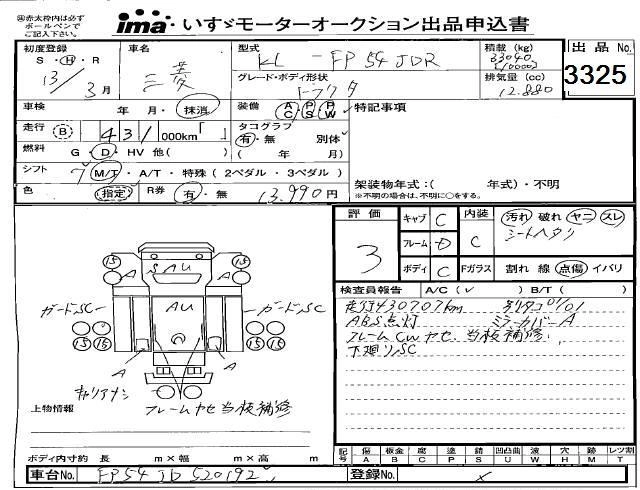 ㊟赤太枠内は必ず
ボールペンで
ご記入下さい。
ima いすゞモーターオークション出品申込書
初度登録
S・H・R
13年3月
車名
三菱
型式
KL-FP54JDR
グレード・ボディ形状
トラクタ
積載 (kg)
排気量 (cc)
12.880
出品 No.
3325
車検 年・月・抹消
装備 AC・PS・PW
特記事項
走行 B 431,000km「 」
タコグラフ 別体
有・無 ( 年 月)
燃料 G・D・HV 他( )
シフト 7 M/T・A/T・特殊 ( 2ペダル・3ペダル )
色 (指定) R券 有・無 13,990円
架装物年式:( 年式)・不明
※不明の場合は、不明に○をする。
評価
3
キャブ C
フレーム D
ボディ C
内装 C
汚れ 破れ ヤニ スレ
シートヘタリ
Fガラス 割れ 線 点傷 イバリ
検査員報告 A/C ( ✓ ) B/T ( )
走行430707km
ABS点灯 ミラーカバーA
フレームCWヤセ、当板補修、
下廻りSC
15 15
A SAU A
AU
ガードSC ガードSC
15 15 15 15
A A
キャリアナシ
フレームヤセ当板補修
上物情報
ボディ内寸約 長 m×幅 m×高 m
記号 傷A 板金B 腐C 塗P 錆S 凹凸曲U 波W 穴H 跡M レツ割T
車台No. FP54JD520192
登録No. ×